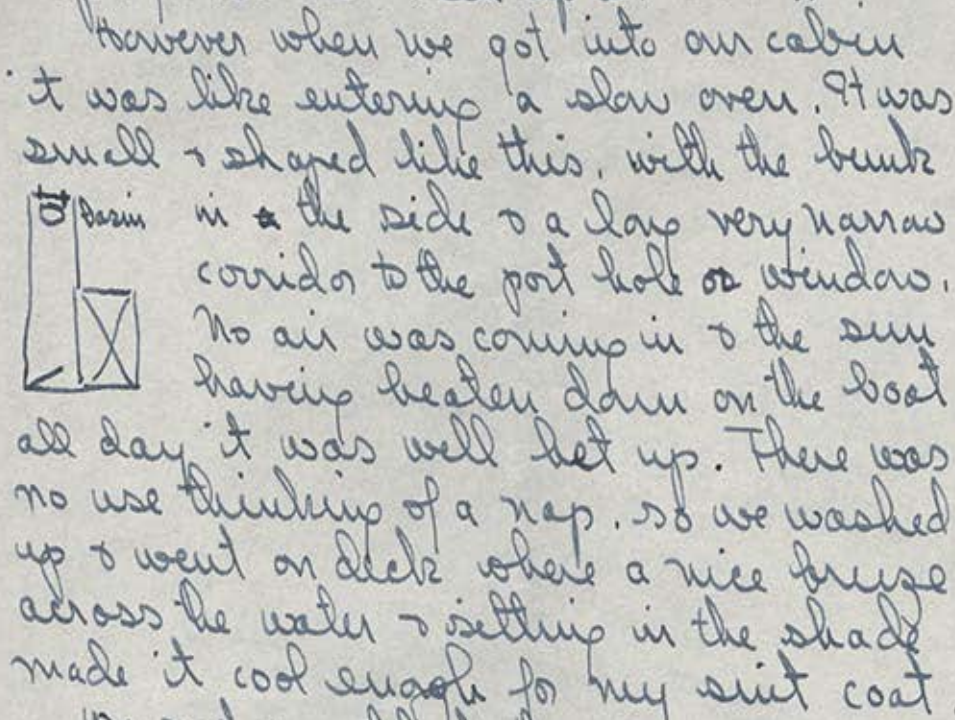 However when we got into our cabin
it was like entering a slow oven. It was
small & shaped like this, with the bunk
Basin
in the side & a long very narrow
corridor to the port hole or window.
No air was coming in & the sun
having beaten down on the boat
all day it was well het up. There was
no use thinking of a nap, so we washed
up & went on deck where a nice breeze
across the water & sitting in the shade
made it cool enough for my suit coat